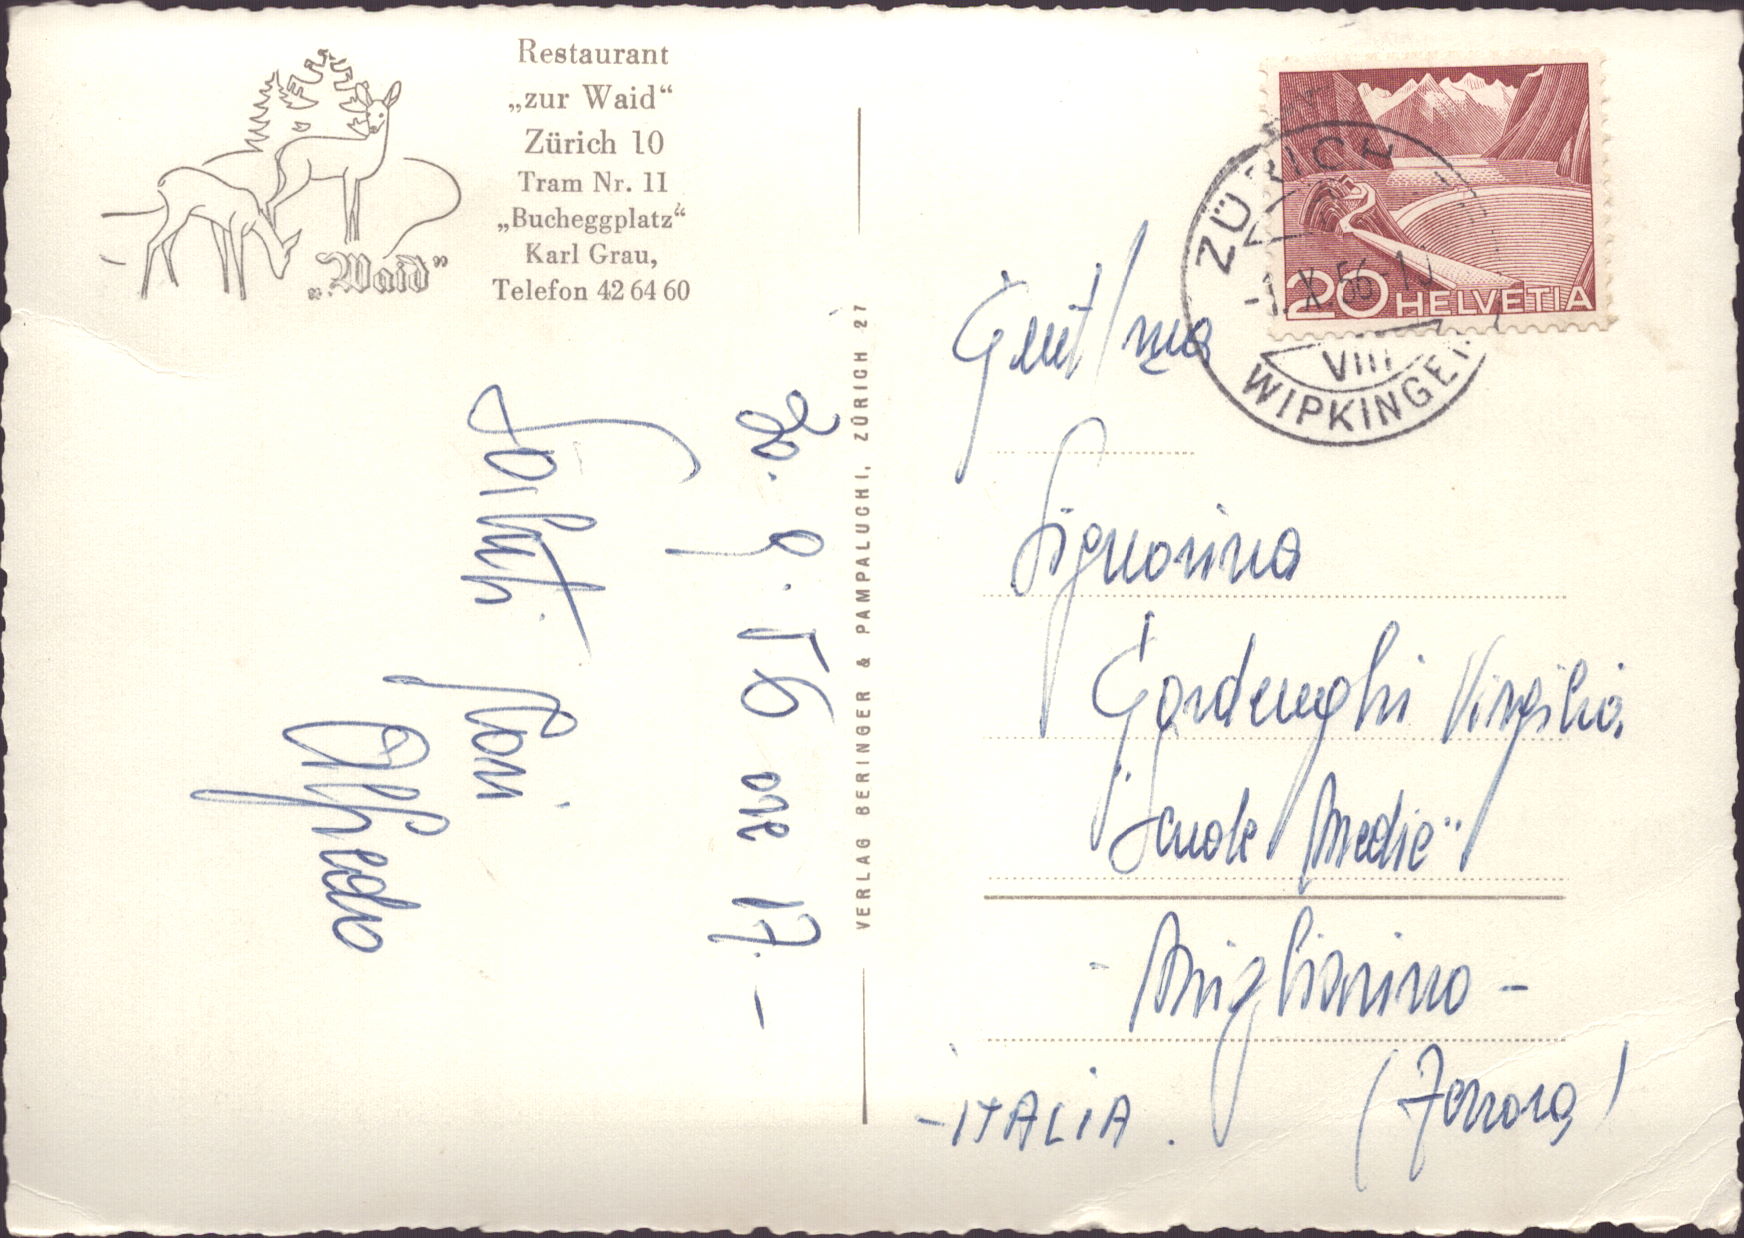 Restaurant
„zur Waid“
Zürich 10
Tram Nr. 11
„Bucheggplatz“
Karl Grau,
Telefon 42 64 60
„Waid”
30. 9. 56 ore 17.-
Saluti
Alfredo
VERLAG BERINGER & PAMPALUCHI, ZÜRICH 27
HELVETIA
20
ZÜRICH
-1.X.56-1
VIII
WIPKINGEN
Gent/ma
Signorina
Gardenghi Virgilia
"Scuole Medie"
- Migliarino -
(Ferrara)
-ITALIA.